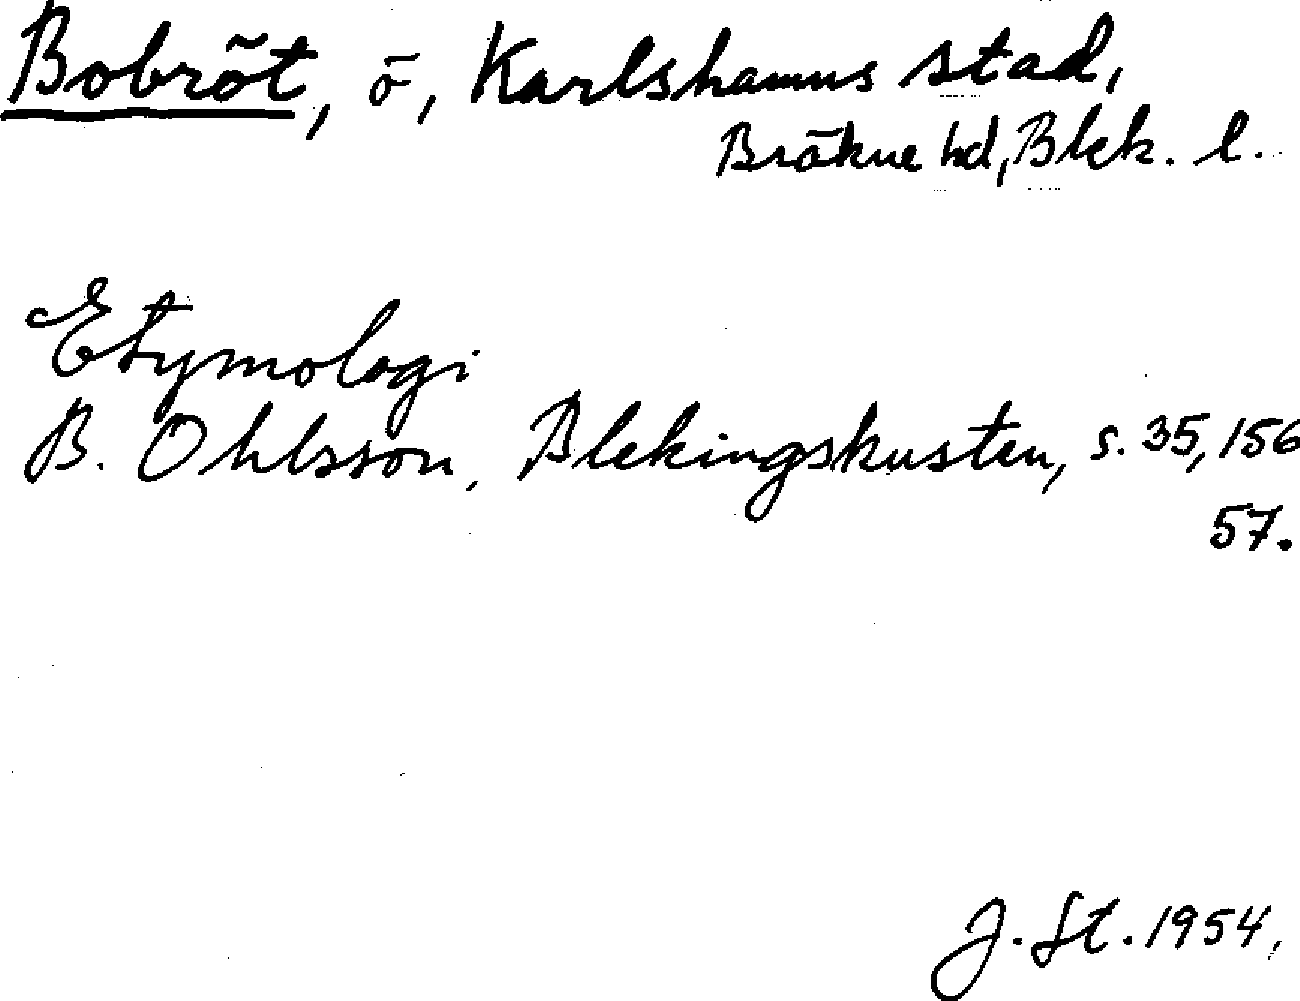 Bobröt, ö, Karlshamns stad,
Bräkne hd, Blek. l.
Etymologi
B. Ohlsson, Blekingskusten, s. 35, 156
57.
J. St. 1954.